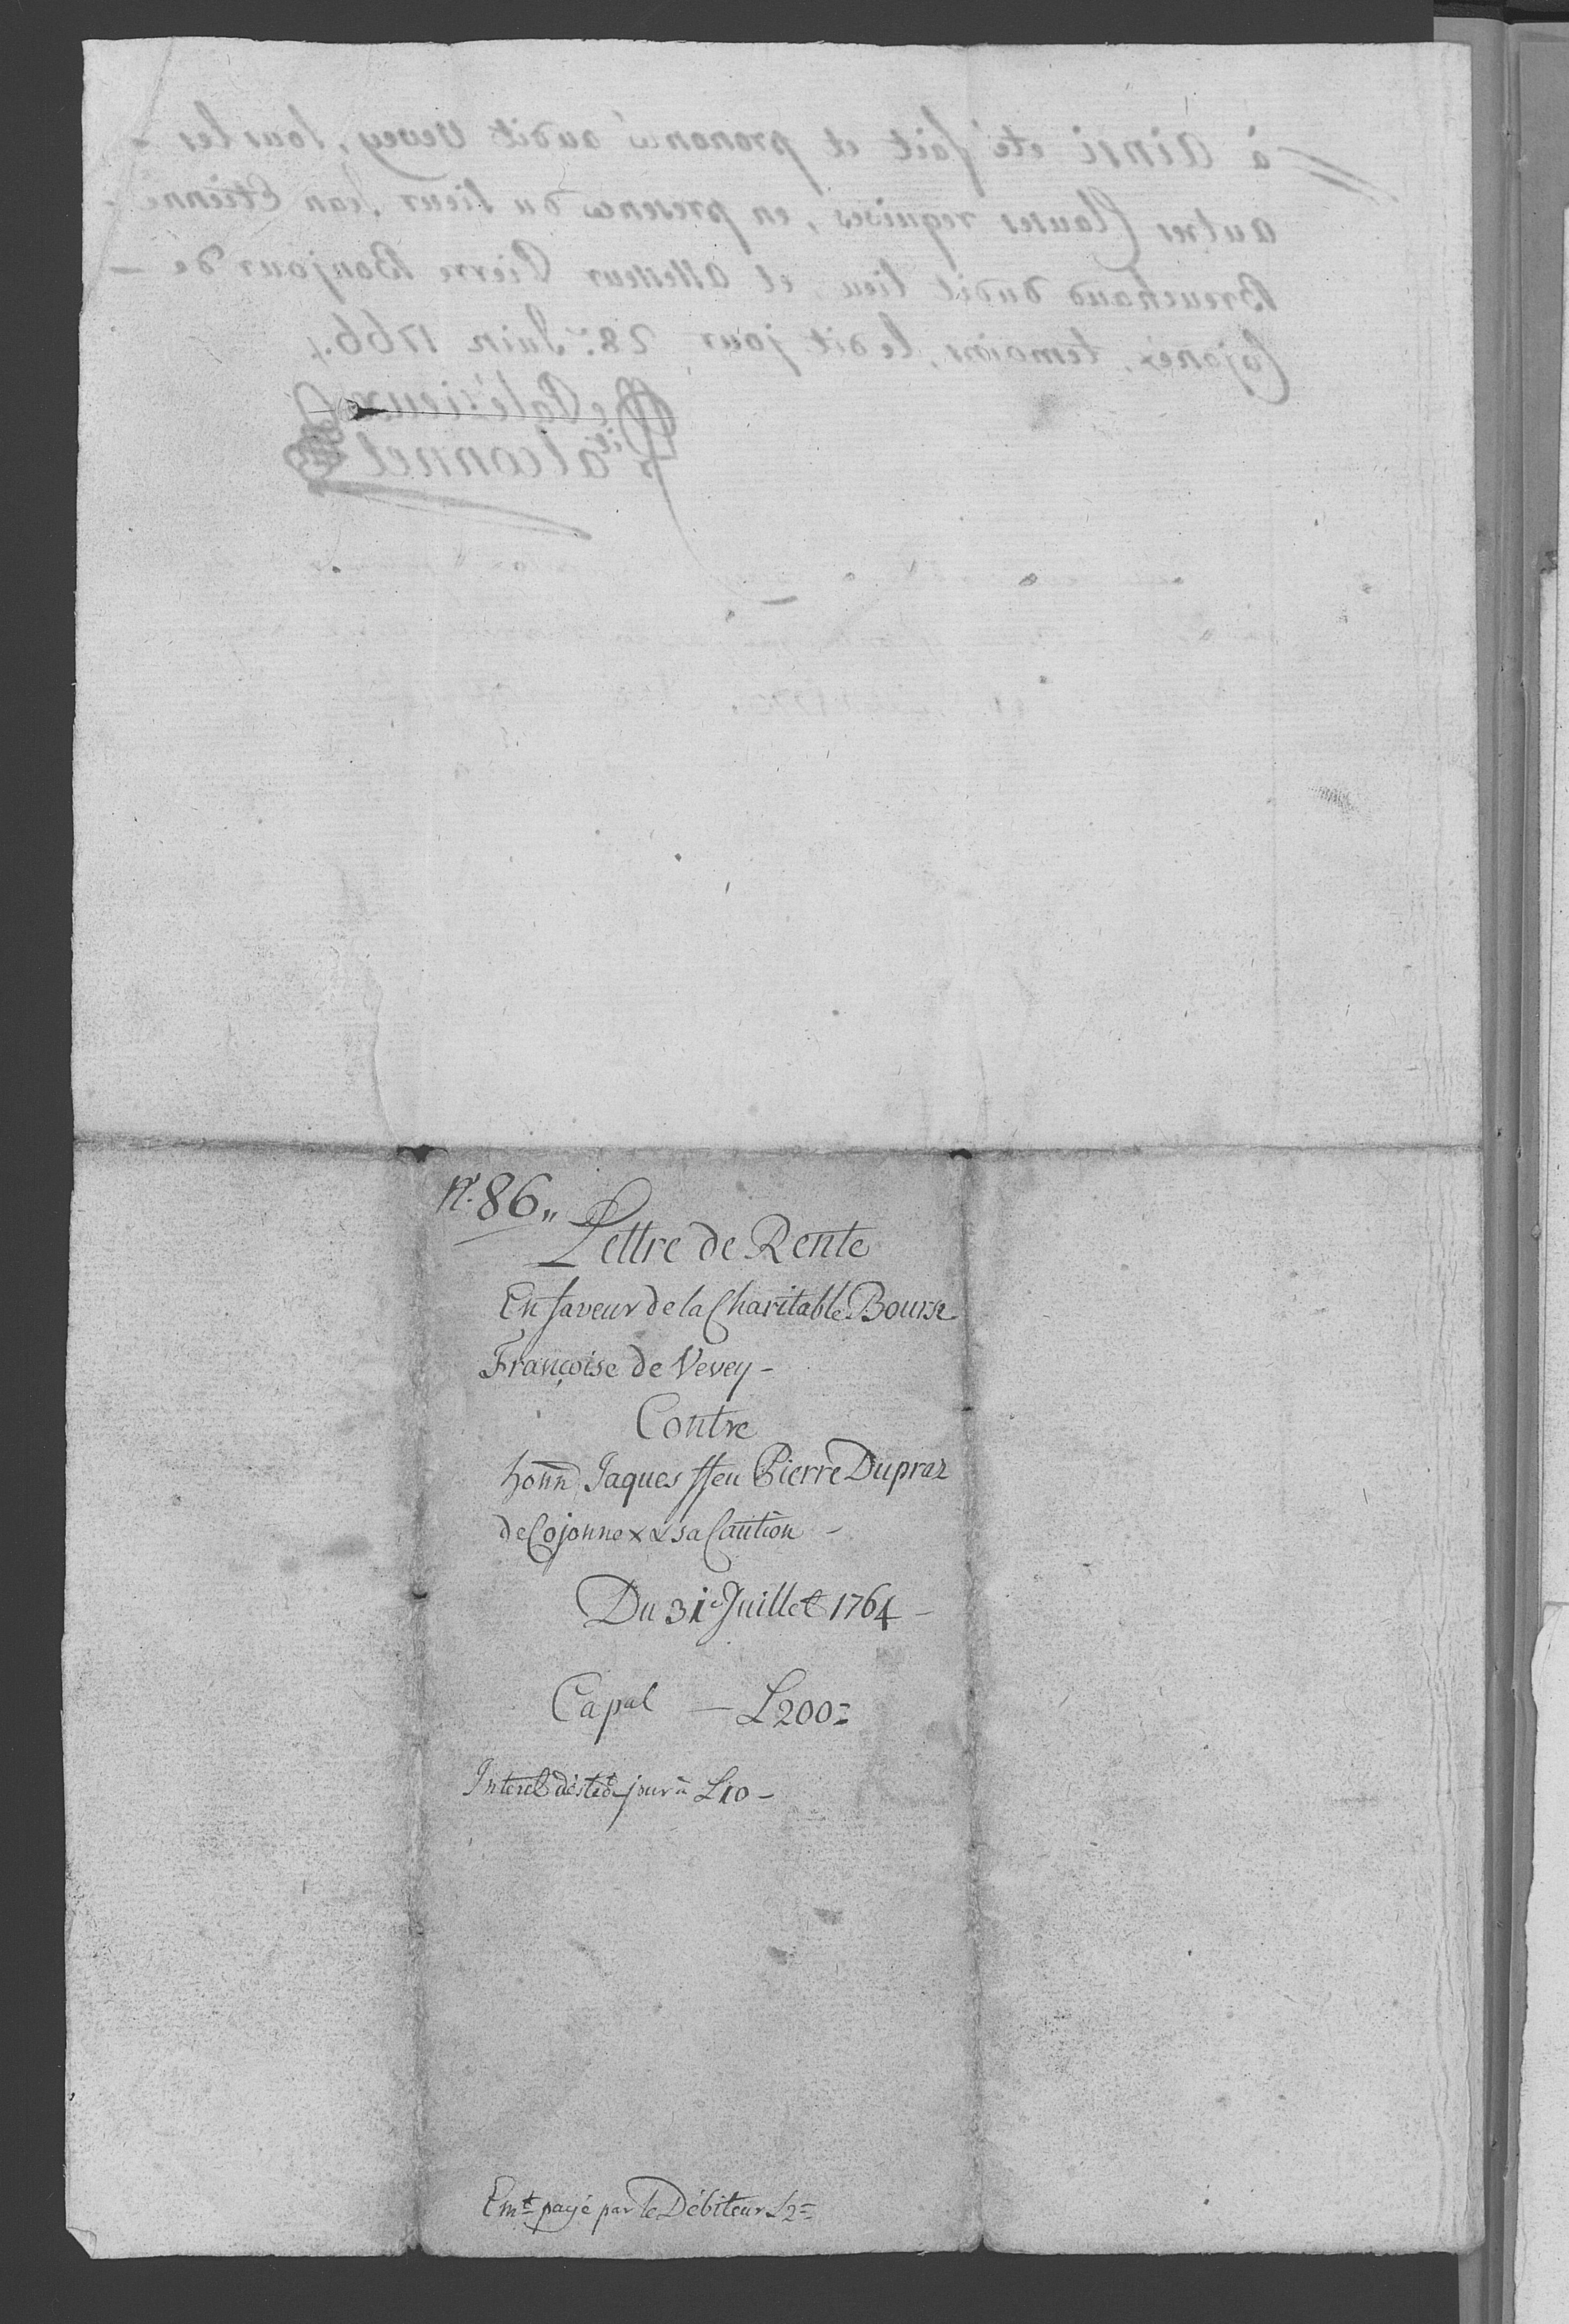 N.° 86,,
Lettre de Rente
En faveur de la Charitable Bourse
Françoise de Vevey -
Contre
honn. Jaques ffeu Pierre Dupraz
de Cojonnex & sa Caution -
Du 31e Juillet 1764 -
Capal — L 200 =
Interet dès led. jour à L 10 -
Emt. payé par le Débiteur L 2 =
à Ainsi été fait et prononcé audit Vevey, sous les
autres Clauses requises, en presence du sieur Jean Etienne
Breuchaud dudit lieu, et assesseur Pierre Bonjour de
Cojonex, temoins, ledit jour 28.e Juin 1766.